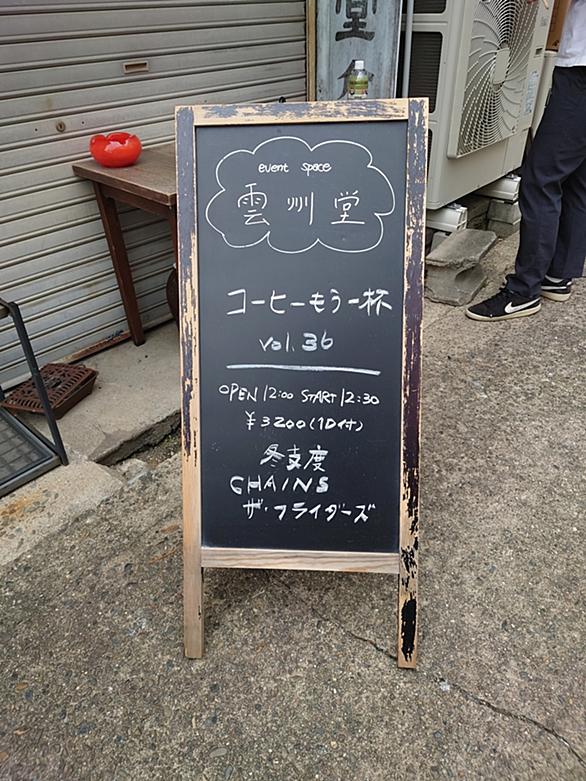 堂
event space
雲州堂
コーヒーもう一杯
vol. 36
OPEN 12:00 START 12:30
¥3200(1D付)
冬支度
CHAINS
ザ・フライダーズ